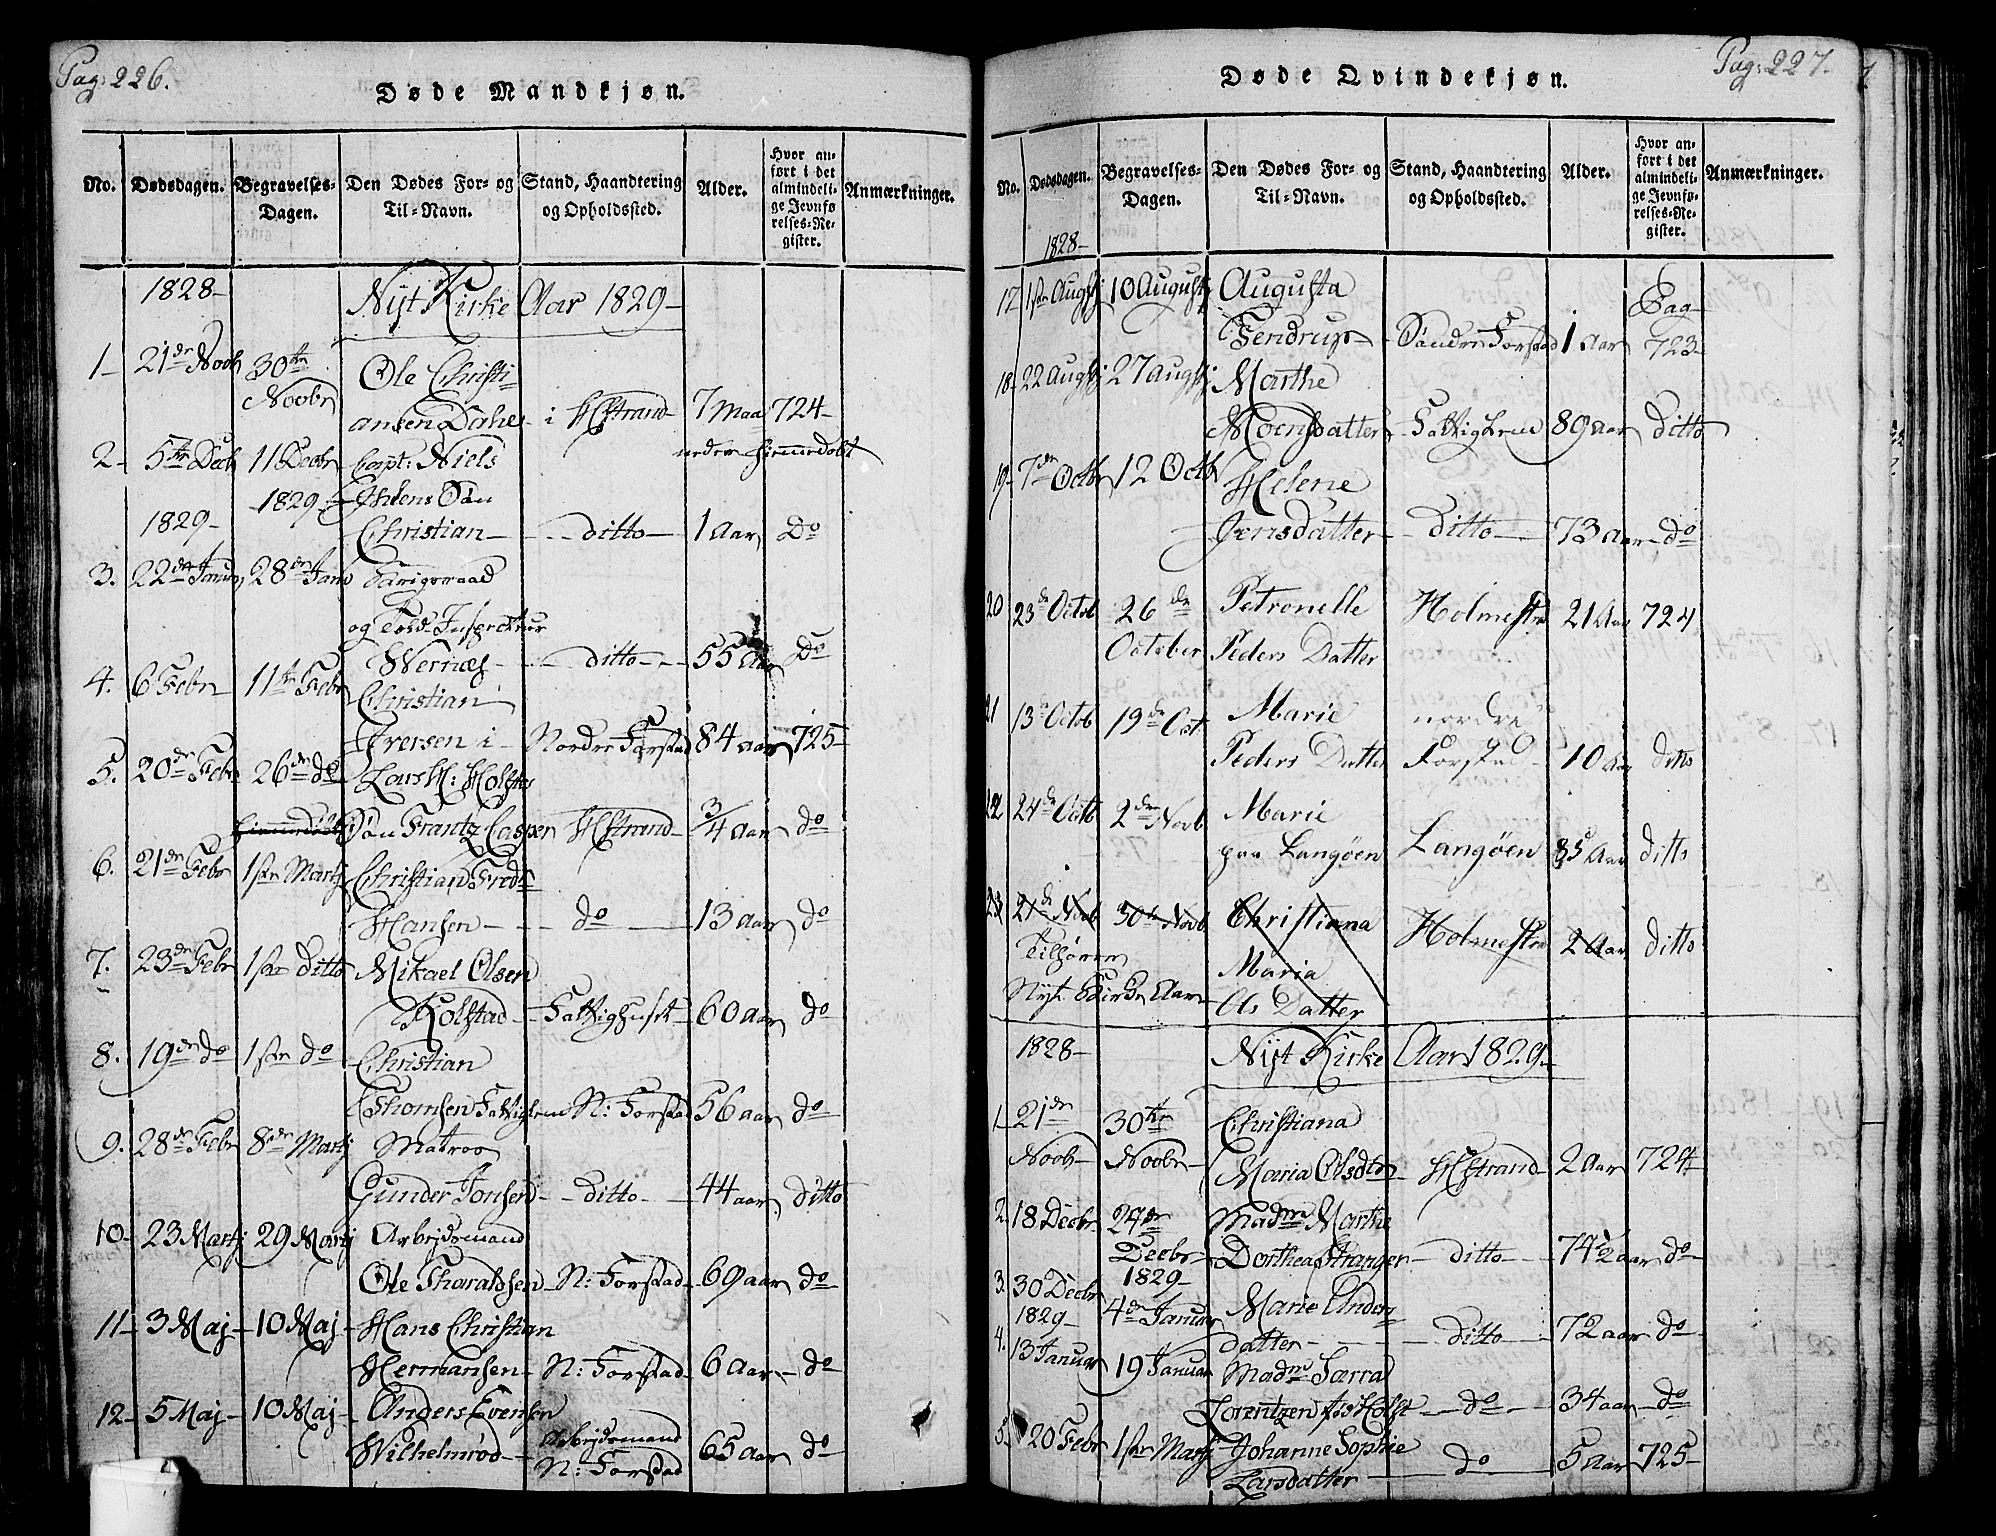 Pag: 226.
Døde Mandkjøn.
No. Dødsdagen. Begravelses-Dagen. Den Dødes For- og Til-Navn. Stand, Haandtering og Opholdssted. Alder. Hvor anført i det almindelige Jevnførelses-Register. Anmærkninger.
1828- Nyt Kirke Aar 1829-
1- 21de Novb 30te Ole Christi-
Novbr ansen Dahes - i HStrand 7 Maa 724-
2- 5te Decb 11 Decbr Capt: Niels
1829- Ihlens Søn
1829- Christian - ditto - 1 Aar Do
3. 22de Januar 28de Janu
og Told-Inspecteur
Wernes - ditto - 55 Aar Do
4. 6 Febr 11te Febr Christian
Iversen i - Nordre Forstad 84 aar 725-
5. 20de Febr 26de do Lars H: Holstes
Søn Frantz Casper HStrand 3/4 Aar do
6. 21de Febr 1ste Martj Christian Fredr
Hansen - do - 13 aar do
7. 23de Febr 1ste ditto Mikael Olsen
Kolstad - Fattighuset 60 aar do
8. 19de do 1ste do Christian
Thomsen Fattiglem N: Forstad 56 aar do
9. 28de Febr 8de Martj Matros
Gunder Jonsen - ditto - 44 aar ditto
10- 23 Martj 29 Martj Arbejdsmand
Ole Tharaldsen N: Forstad 69 aar do
11- 3 Maj - 10 Maj - Hans Christian
Hermansen - N: Forstad 6 Aar - do
12- 5 Maj - 10 Maj - Anders Evensen
Wilhelmrød - Arbejdsmand N: Forstad 65 aar do
Pag: 227.
Døde Qvindekjøn.
No. Dødsdagen. Begravelses-Dagen. Den Dødes For- og Til-Navn. Stand, Haandtering og Opholdssted. Alder. Hvor anført i det almindelige Jevnførelses-Register. Anmærkninger.
1828-
17 1ste Augstj 10 Augustj Augusta Pag-
Tendrup - Søndre Forstad 1 Aar 723-
18- 22 Augstj 27 Augstj Marthe
Moensdatter - Fattiglem 89 Aar ditto
19- 7de Octbr 12 Octb Helene
Jensdatter - ditto - 73 Aar - do
20 23de Octob 26de Petronelle Holmestr 21 Aar 724
October Peders Datter
21 13de Octob 19de Oct. Marie nordre
Peders Datter Forstad 10 Aar ditto
22 24de Octb 2den Novb Marie
paa Langøen Langøen 85 Aar ditto
23 21de Novb 30te Novb Christiana Holmestr 2 Aar ditto
Tilhører Maria
Nyt Kirke Aar Os Datter
1828- Nyt Kirke Aar 1829-
1- 21de 30te Christiana
Novb- Novbr- Maria Olsdtr HStrand 2 Aar 724
2. 18 Decbr 29de Madme Marthe
Decbr- Dorthea Stranger - ditto - 74 1/2 aar do
3. 30 Decbr 1829-
1829- 4de Januar Marie Anders
datter - ditto - 72 aar do
4. 13 Januar 19 Januar Madme Sarra
Lorentzen Holst - do - 34 aar - do
5. 20 Febr 1ste Martj Johanne Sophie
Larsdatter - do - 5 Aar 725-